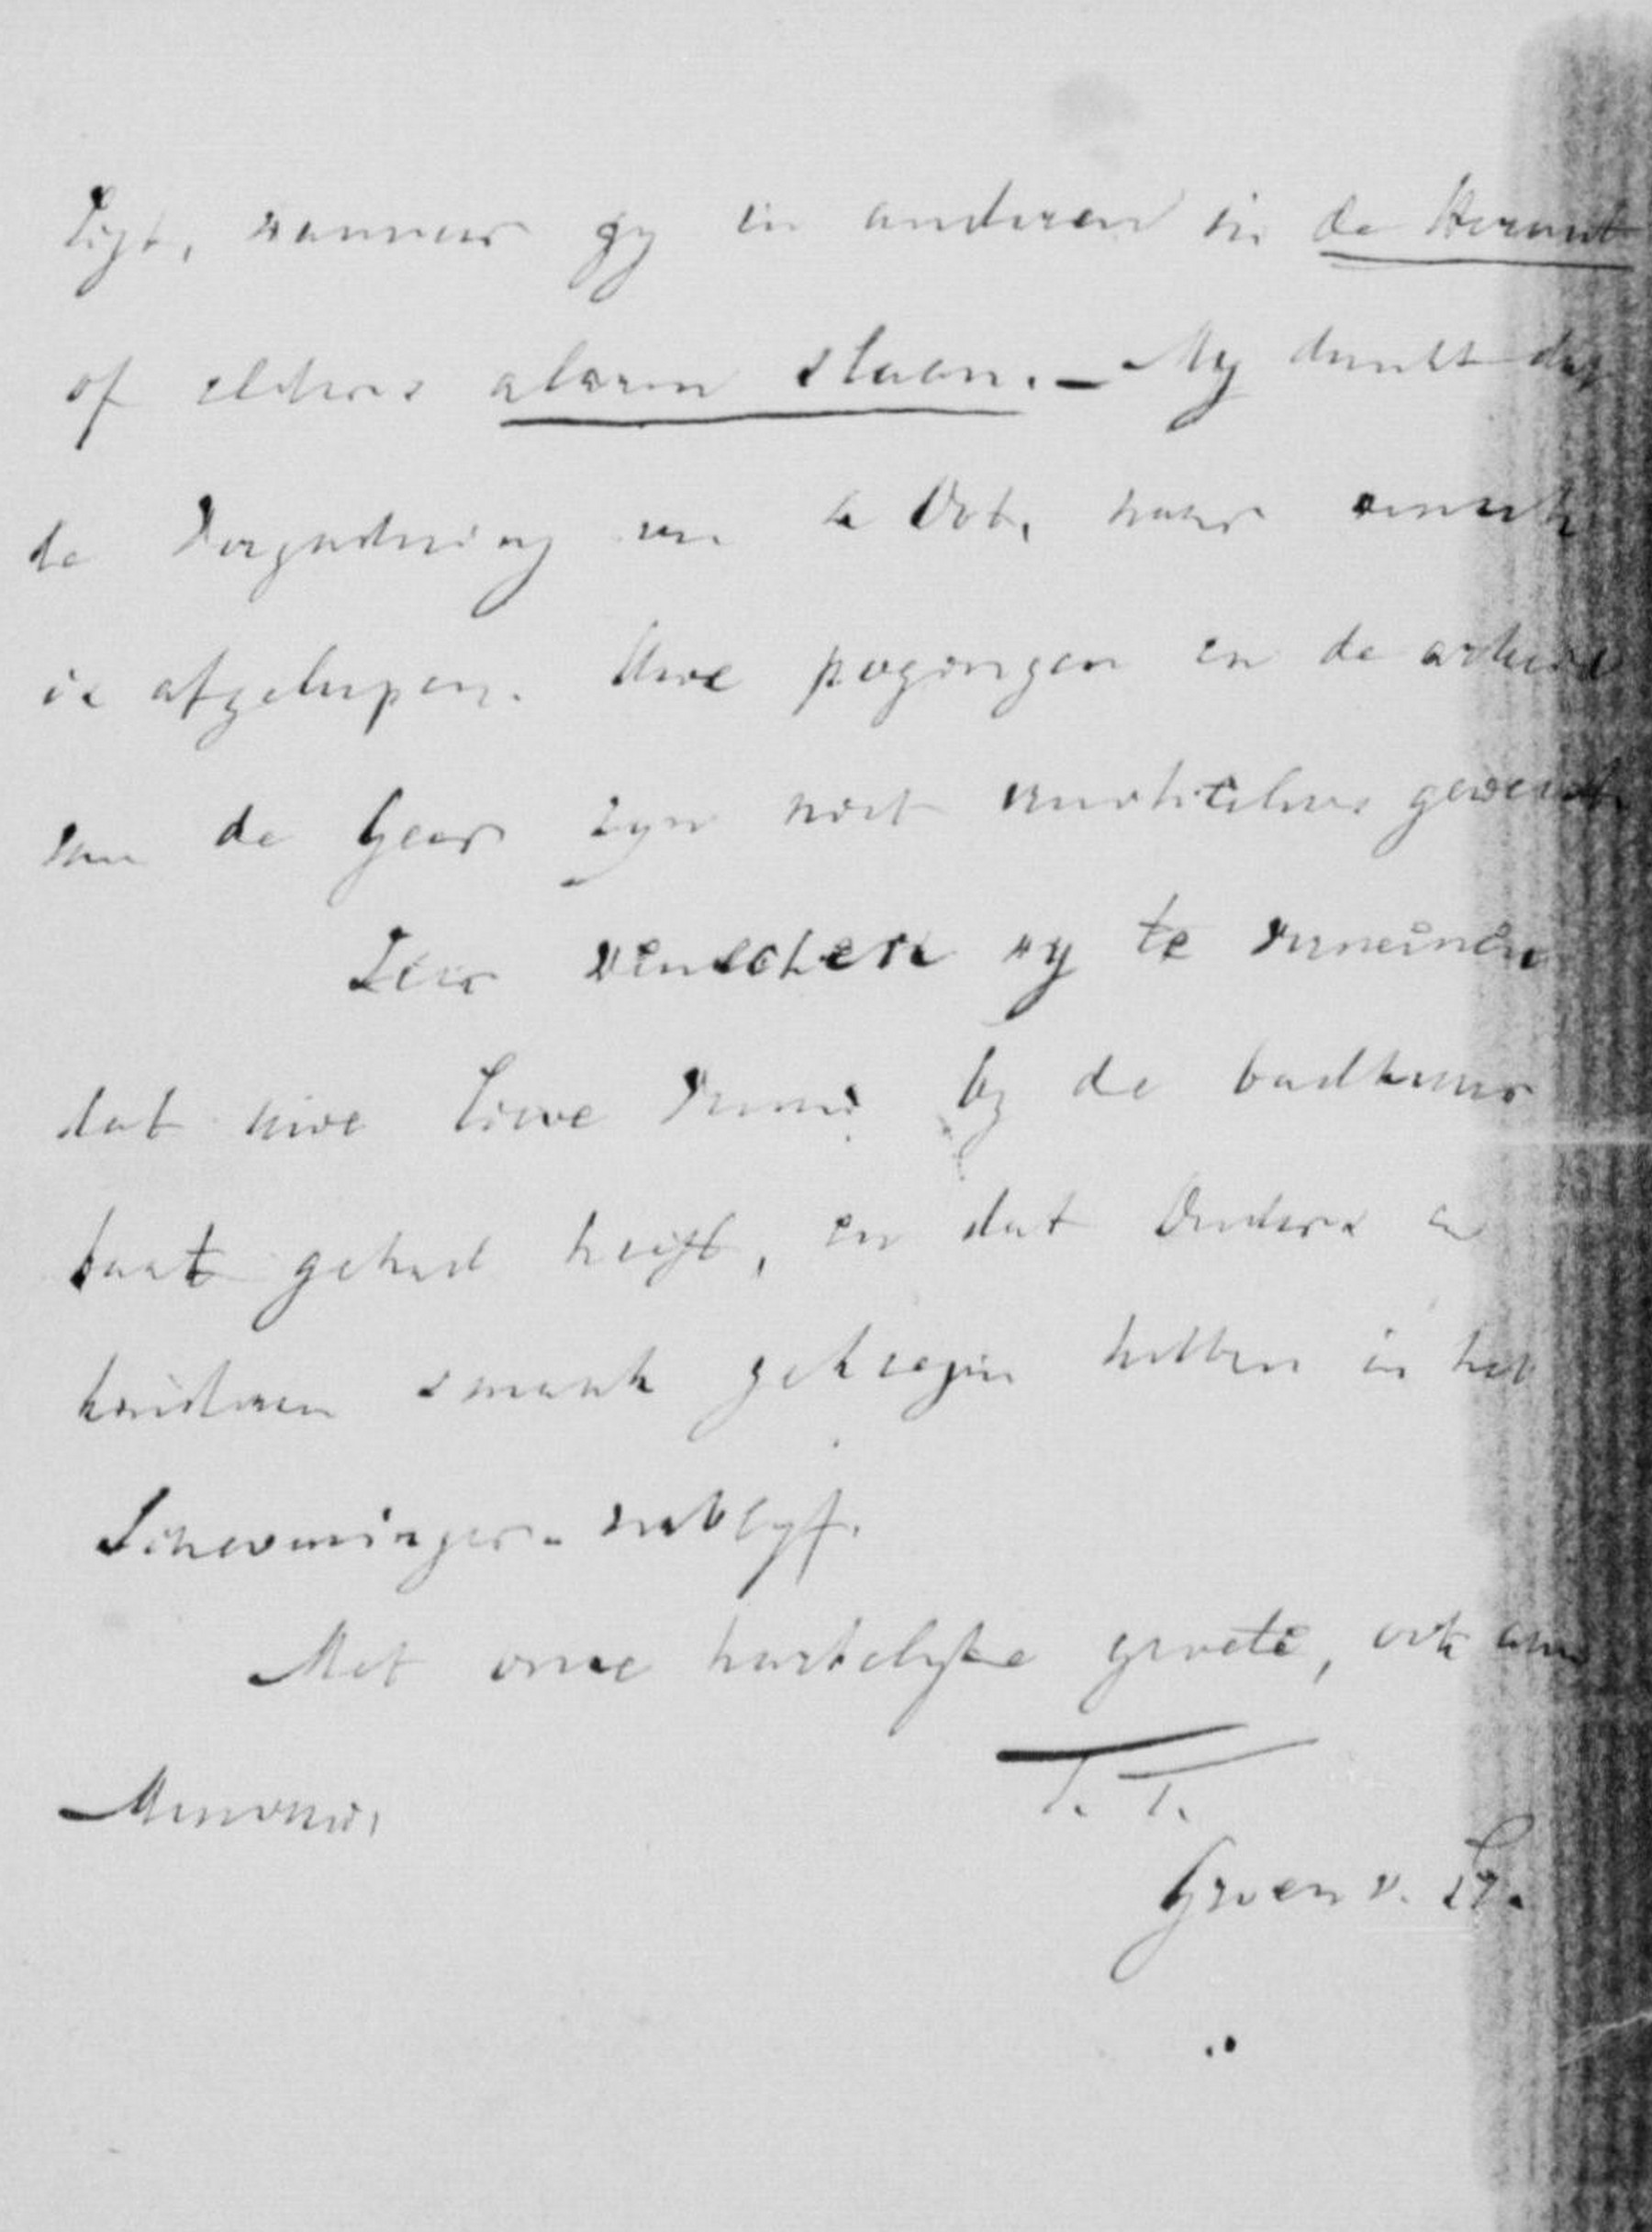 ligt, wanneer gy en anderen in de Heraut
of elders alarm slaan. – My dunkt dat
de Vergadering van 2 Oct. naar wensch
is afgeloopen. Uwe pogingen en de arbeid
van de Geer zyn niet vruchteloos geweest
Zeer wenschen wy te vernemen
dat uwe lieve Vrouw by de badkuur
baat gehad heeft, en dat Ouders en
kinderen smaak gekregen hebben in het
Scheveninger-verblyf.
Met onze hartelyke groete, ook aan
Mevrouw,
T. T.
Groen v. Pr.